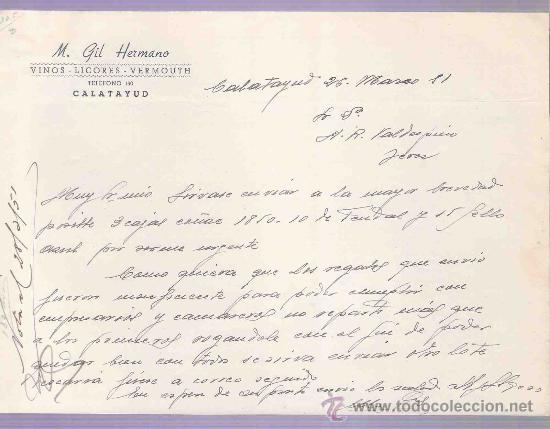 M. Gil Hermano
VINOS - LICORES - VERMOUTH
TELEFONO 140
CALATAYUD
Calatayud 26 Marzo 51
Sr Dn
A. R. Valdespino
Jerez
Muy Sr mio Sirvase enviar a la mayor brevedad
posible 3 cajas coñac 1850-10 de Tendal y 15 Sello
azul por serme urgente
Como quiera que los regalos que envio
fueron insuficiente para poder cumplir con
empresarios y camareros no reparti más que
a los primeros rogandole con el fin de poder
quedar bien con todos se sirva enviar otro lote
a correo seguido
En espera de su envio le saluda
28/3/51
todocoleccion.net